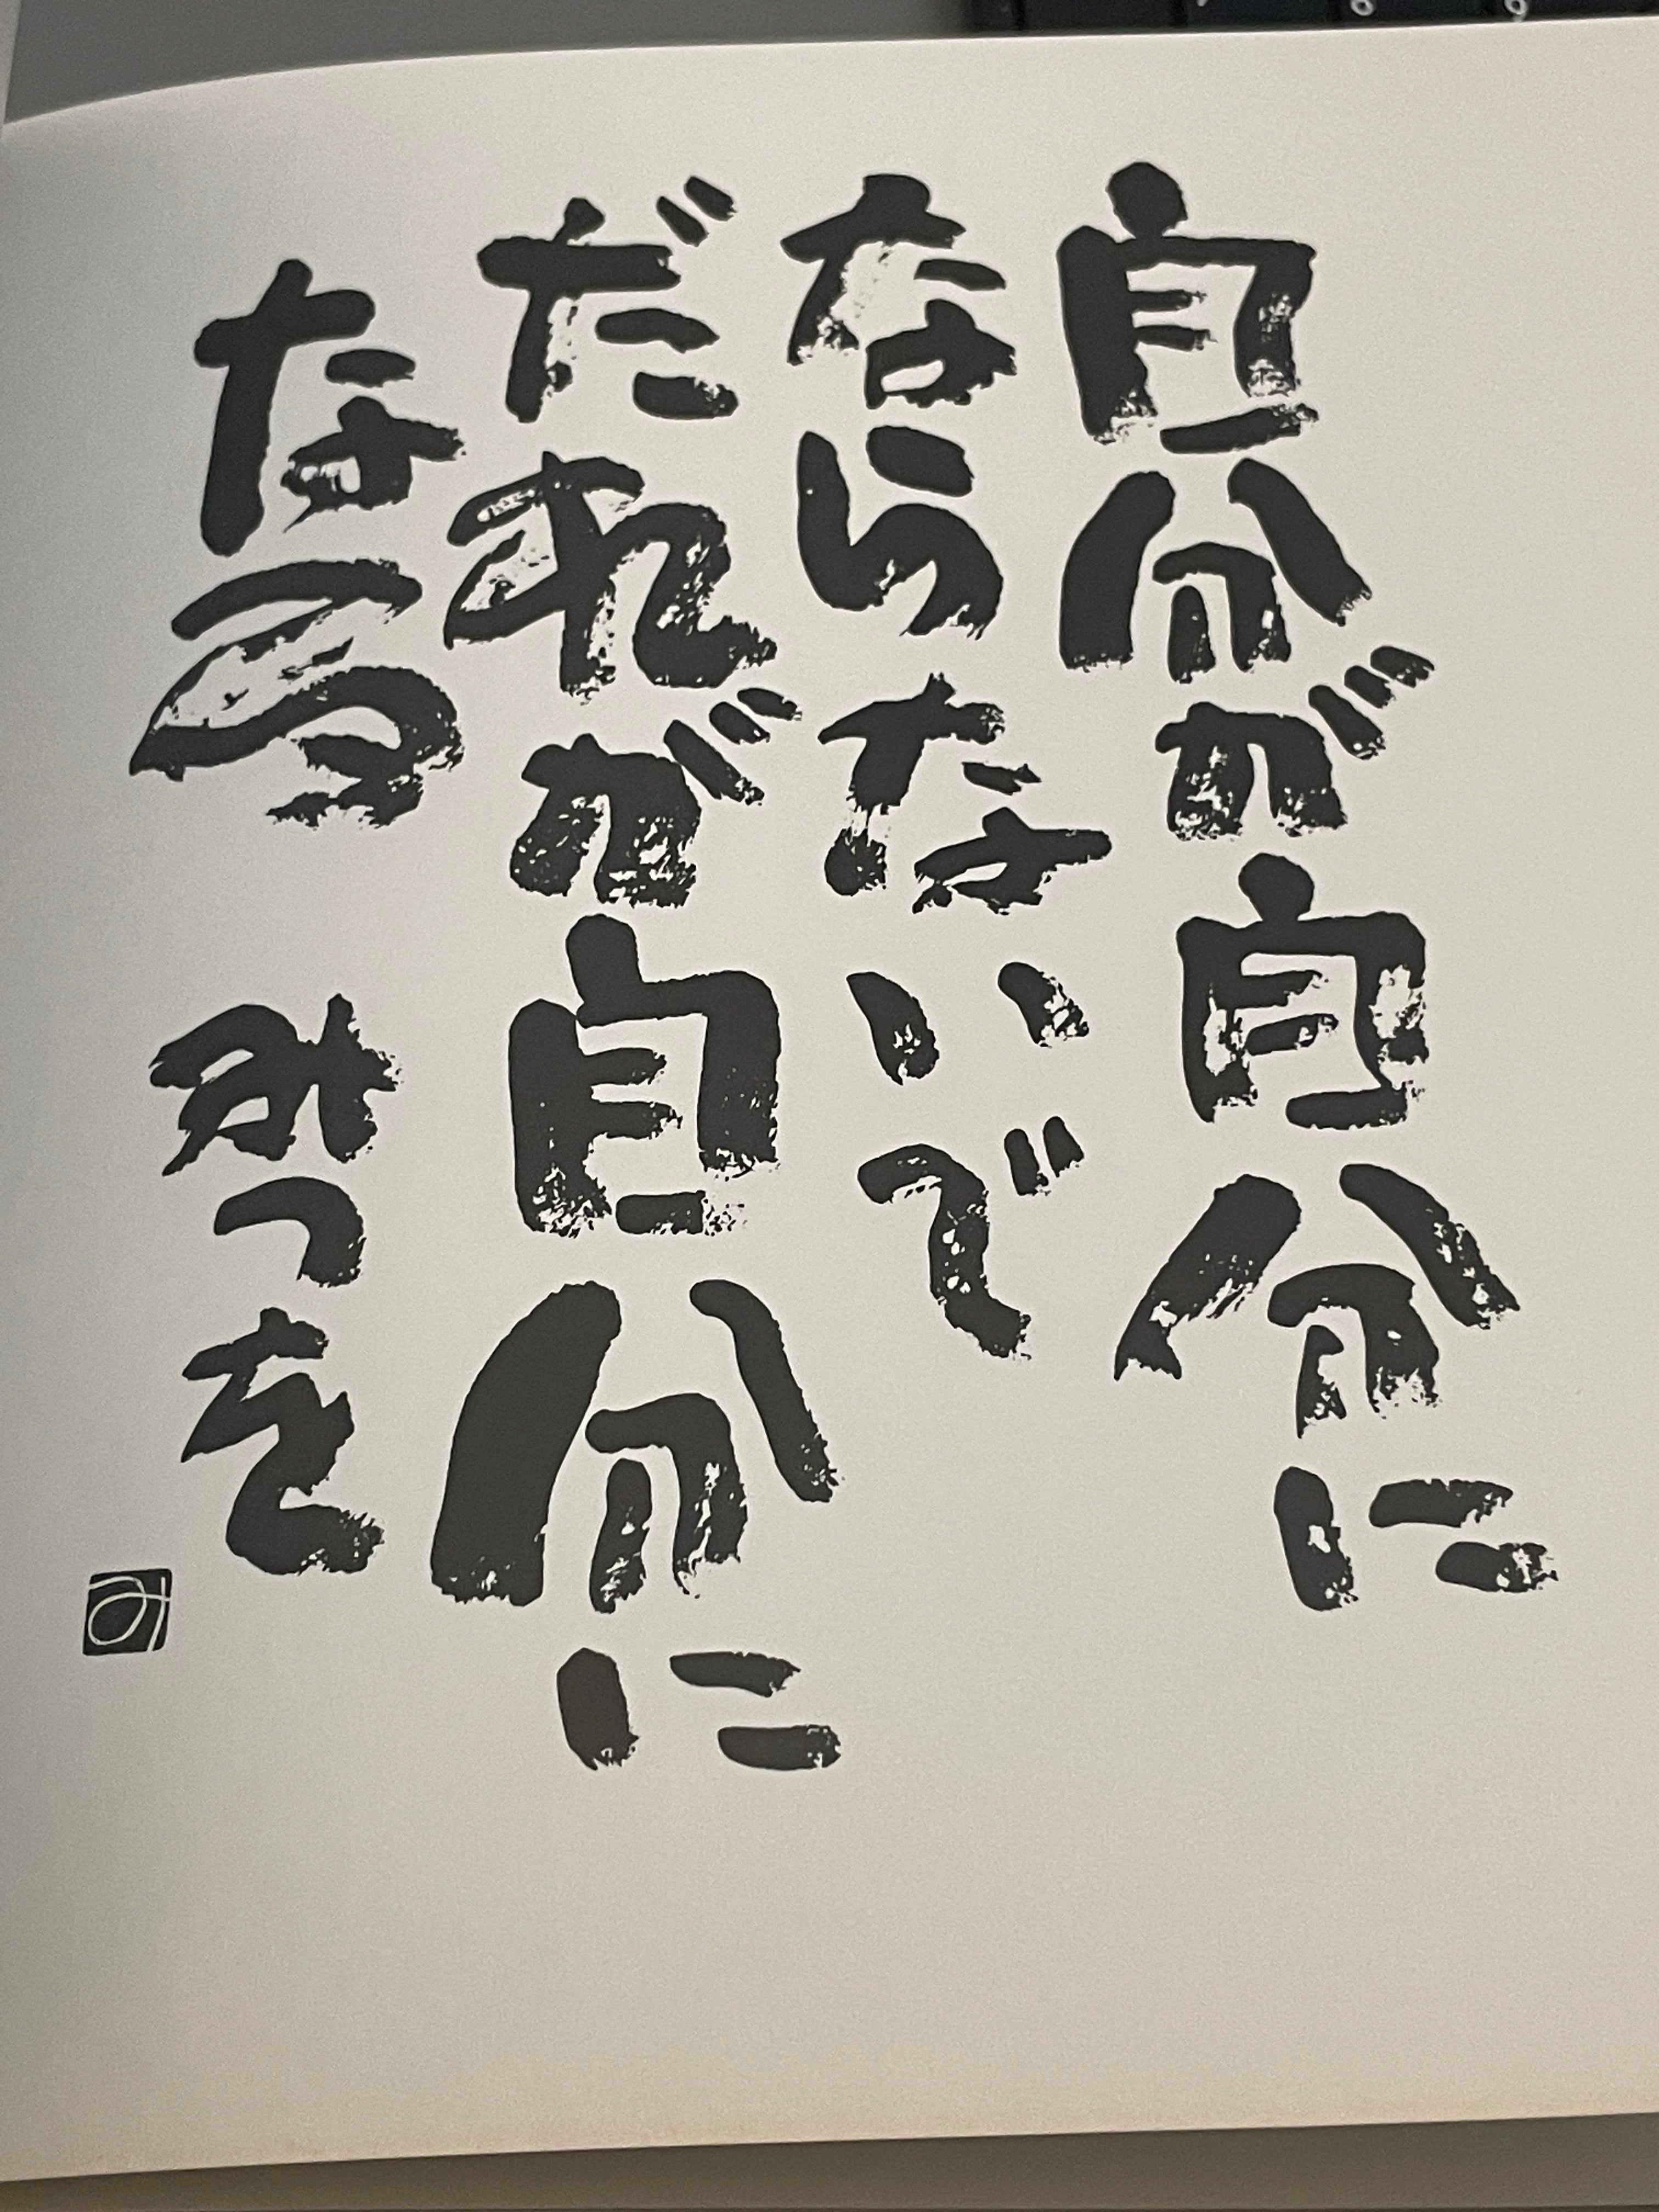 自分が自分に
ならないで
だれが自分に
なる
みつを
み